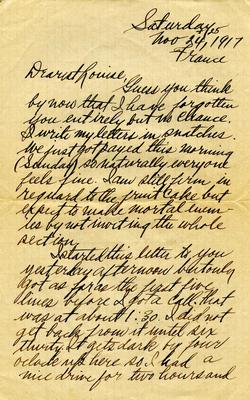 Saturday
Nov 24, 1917
France
Dearest Louise,
Guess you think
by now that I have forgotten
you entirely but no chance.
I write my letters in snatches.
We just got payed this morning
(Sunday) so naturally everyone
feels fine. I am still firm in
reguard to the fruit cake but
expect to make mortal enem-
ies by not inviting the whole
section.
I started this letter to you
yesterday afternoon but only
got as far as the first five
lines before I got a call, that
was at about 1:30. I did not
get back from it until six
thirty. It gets dark by four
oclock up here so I had a
nice drive for two hours and